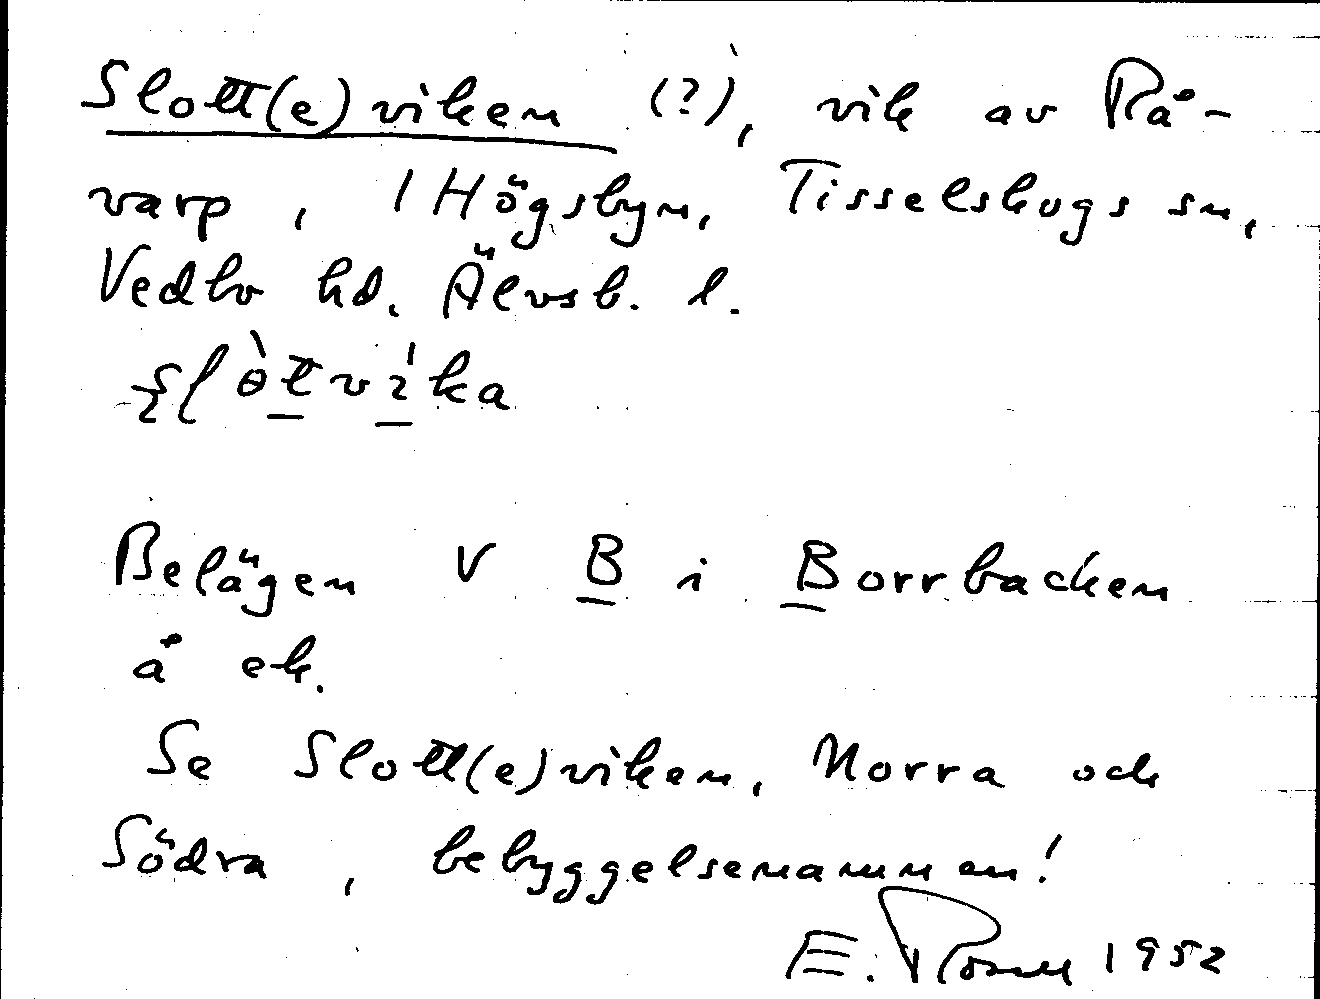 Slott(e)viken (?), vik av Rå-
varp, 1 Högsbyn, Tisselskogs sn,
Vedbo hd. Älvsb. l.
Belägen V B i Borrbacken
å ek.
Se Slott(e)viken, Norra och
Södra, bebyggelsenamnen!
E. 1952